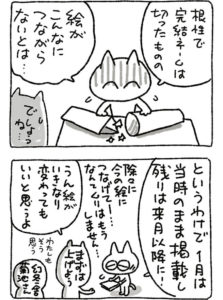 根性で
完結ネームは
切ったものの
絵が
こんなに
つながら
ないとは…
でしょう
ね…
というわけで1月は
当時のまま掲載し
残りは来月以降に!
除々に
今の絵に
つなげて…!
なんてムリはもう
しません…
まずは
上げろ
うん絵が
いきなり
変わっても
いいと思うよ
わたしも
そう
思う
幻冬舎
菊池さん